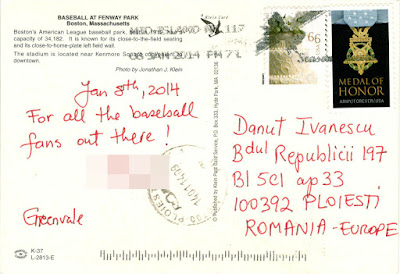 BASEBALL AT FENWAY PARK
Boston, Massachusetts
Boston's American League baseball park,
capacity of 34,182. It is known for its close-to-the-field seating
and its close-to-home-plate left field wall.
The stadium is located near Kenmore Square
downtown.
Photo by Jonathan J. Klein
Klein Card
117
03 JAN 2014 PM 7 L
66
MEDAL OF
HONOR
ARMED FORCES USA
Jan 8th, 2014
For all the baseball
fans out there!
Greenvale
© Published by Klein Post Card Service, P.O. Box 353, Hyde Park, MA. 02136
PLOIESTI
Danut Ivanescu
Bdul Republicii 197
Bl 5C1 ap 33
100392 PLOIESTI
ROMANIA-EUROPE
K-37
L-2813-E